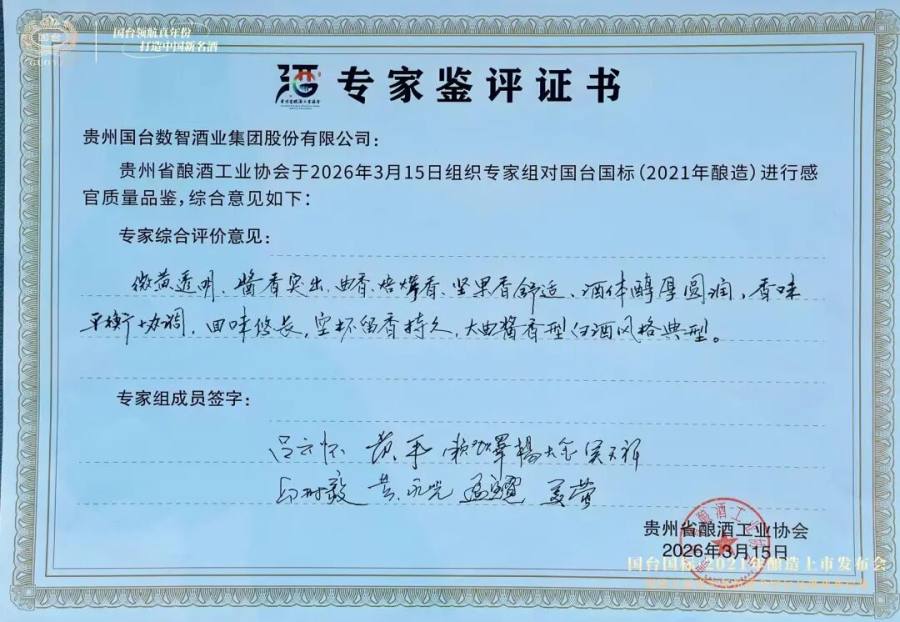 国台
国台领航真年份
打造中国新名酒
专家鉴评证书
贵州国台数智酒业集团股份有限公司：
贵州省酿酒工业协会于2026年3月15日组织专家组对国台国标（2021年酿造）进行感
官质量品鉴，综合意见如下：
专家综合评价意见：
微黄透明、酱香突出、曲香、焙烤香、坚果香舒适、酒体醇厚圆润，香味
平衡协调，回味悠长，空杯留香持久，大曲酱香型白酒风格典型。
专家组成员签字：
吕云怀 黄平
贵州省酿酒工业协会
2026年3月15日
国台国标·2021年酿造上市发布会